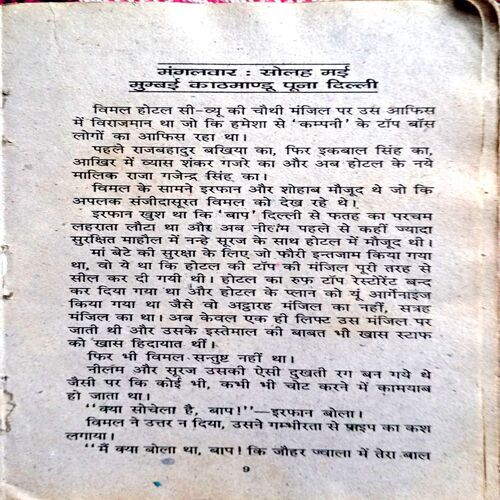 मंगलवार : सोलह मई
मुम्बई काठमाण्डू पूना दिल्ली
विमल होटल सी-व्यू की चौथी मंजिल पर उस आफिस
में विराजमान था जो कि हमेशा से ‘कम्पनी’ के टॉप बॉस
लोगों का आफिस रहा था।
पहले राजबहादुर बखिया का, फिर इकबाल सिंह का,
आखिर में व्यास शंकर गजरे का और अब होटल के नये
मालिक राजा गजेन्द्र सिंह का।
विमल के सामने इरफान और शोहाब मौजूद थे जो कि
अपलक संजीदासूरत विमल को देख रहे थे।
इरफान खुश था कि ‘बाप’ दिल्ली से फतह का परचम
लहराता लौटा था और अब नीलम पहले से कहीं ज्यादा
सुरक्षित माहौल में नन्हे सूरज के साथ होटल में मौजूद थी।
मां बेटे की सुरक्षा के लिए जो फौरी इन्तजाम किया गया
था, वो ये था कि होटल की टॉप की मंजिल पूरी तरह से
सील कर दी गयी थी। होटल का रुफ टॉप रेस्टोरेंट बन्द
कर दिया गया था और होटल के प्लान को यूं आर्गेनाइज
किया गया था जैसे वो अट्ठारह मंजिल का नहीं, सत्रह
मंजिल का था। अब केवल एक ही लिफ्ट उस मंजिल पर
जाती थी और उसके इस्तेमाल की बाबत भी खास स्टाफ
को खास हिदायात थीं।
फिर भी विमल सन्तुष्ट नहीं था।
नीलम और सूरज उसकी ऐसी दुखती रग बन गये थे
जैसी पर कि कोई भी, कभी भी चोट करने में कामयाब
हो जाता था।
‘‘क्या सोचेला है, बाप!’’—इरफान बोला।
विमल ने उत्तर न दिया, उसने गम्भीरता से पाइप का कश
लगाया।
‘‘मैं क्या बोला था, बाप! कि जौहर ज्वाला में तेरा बाल
9